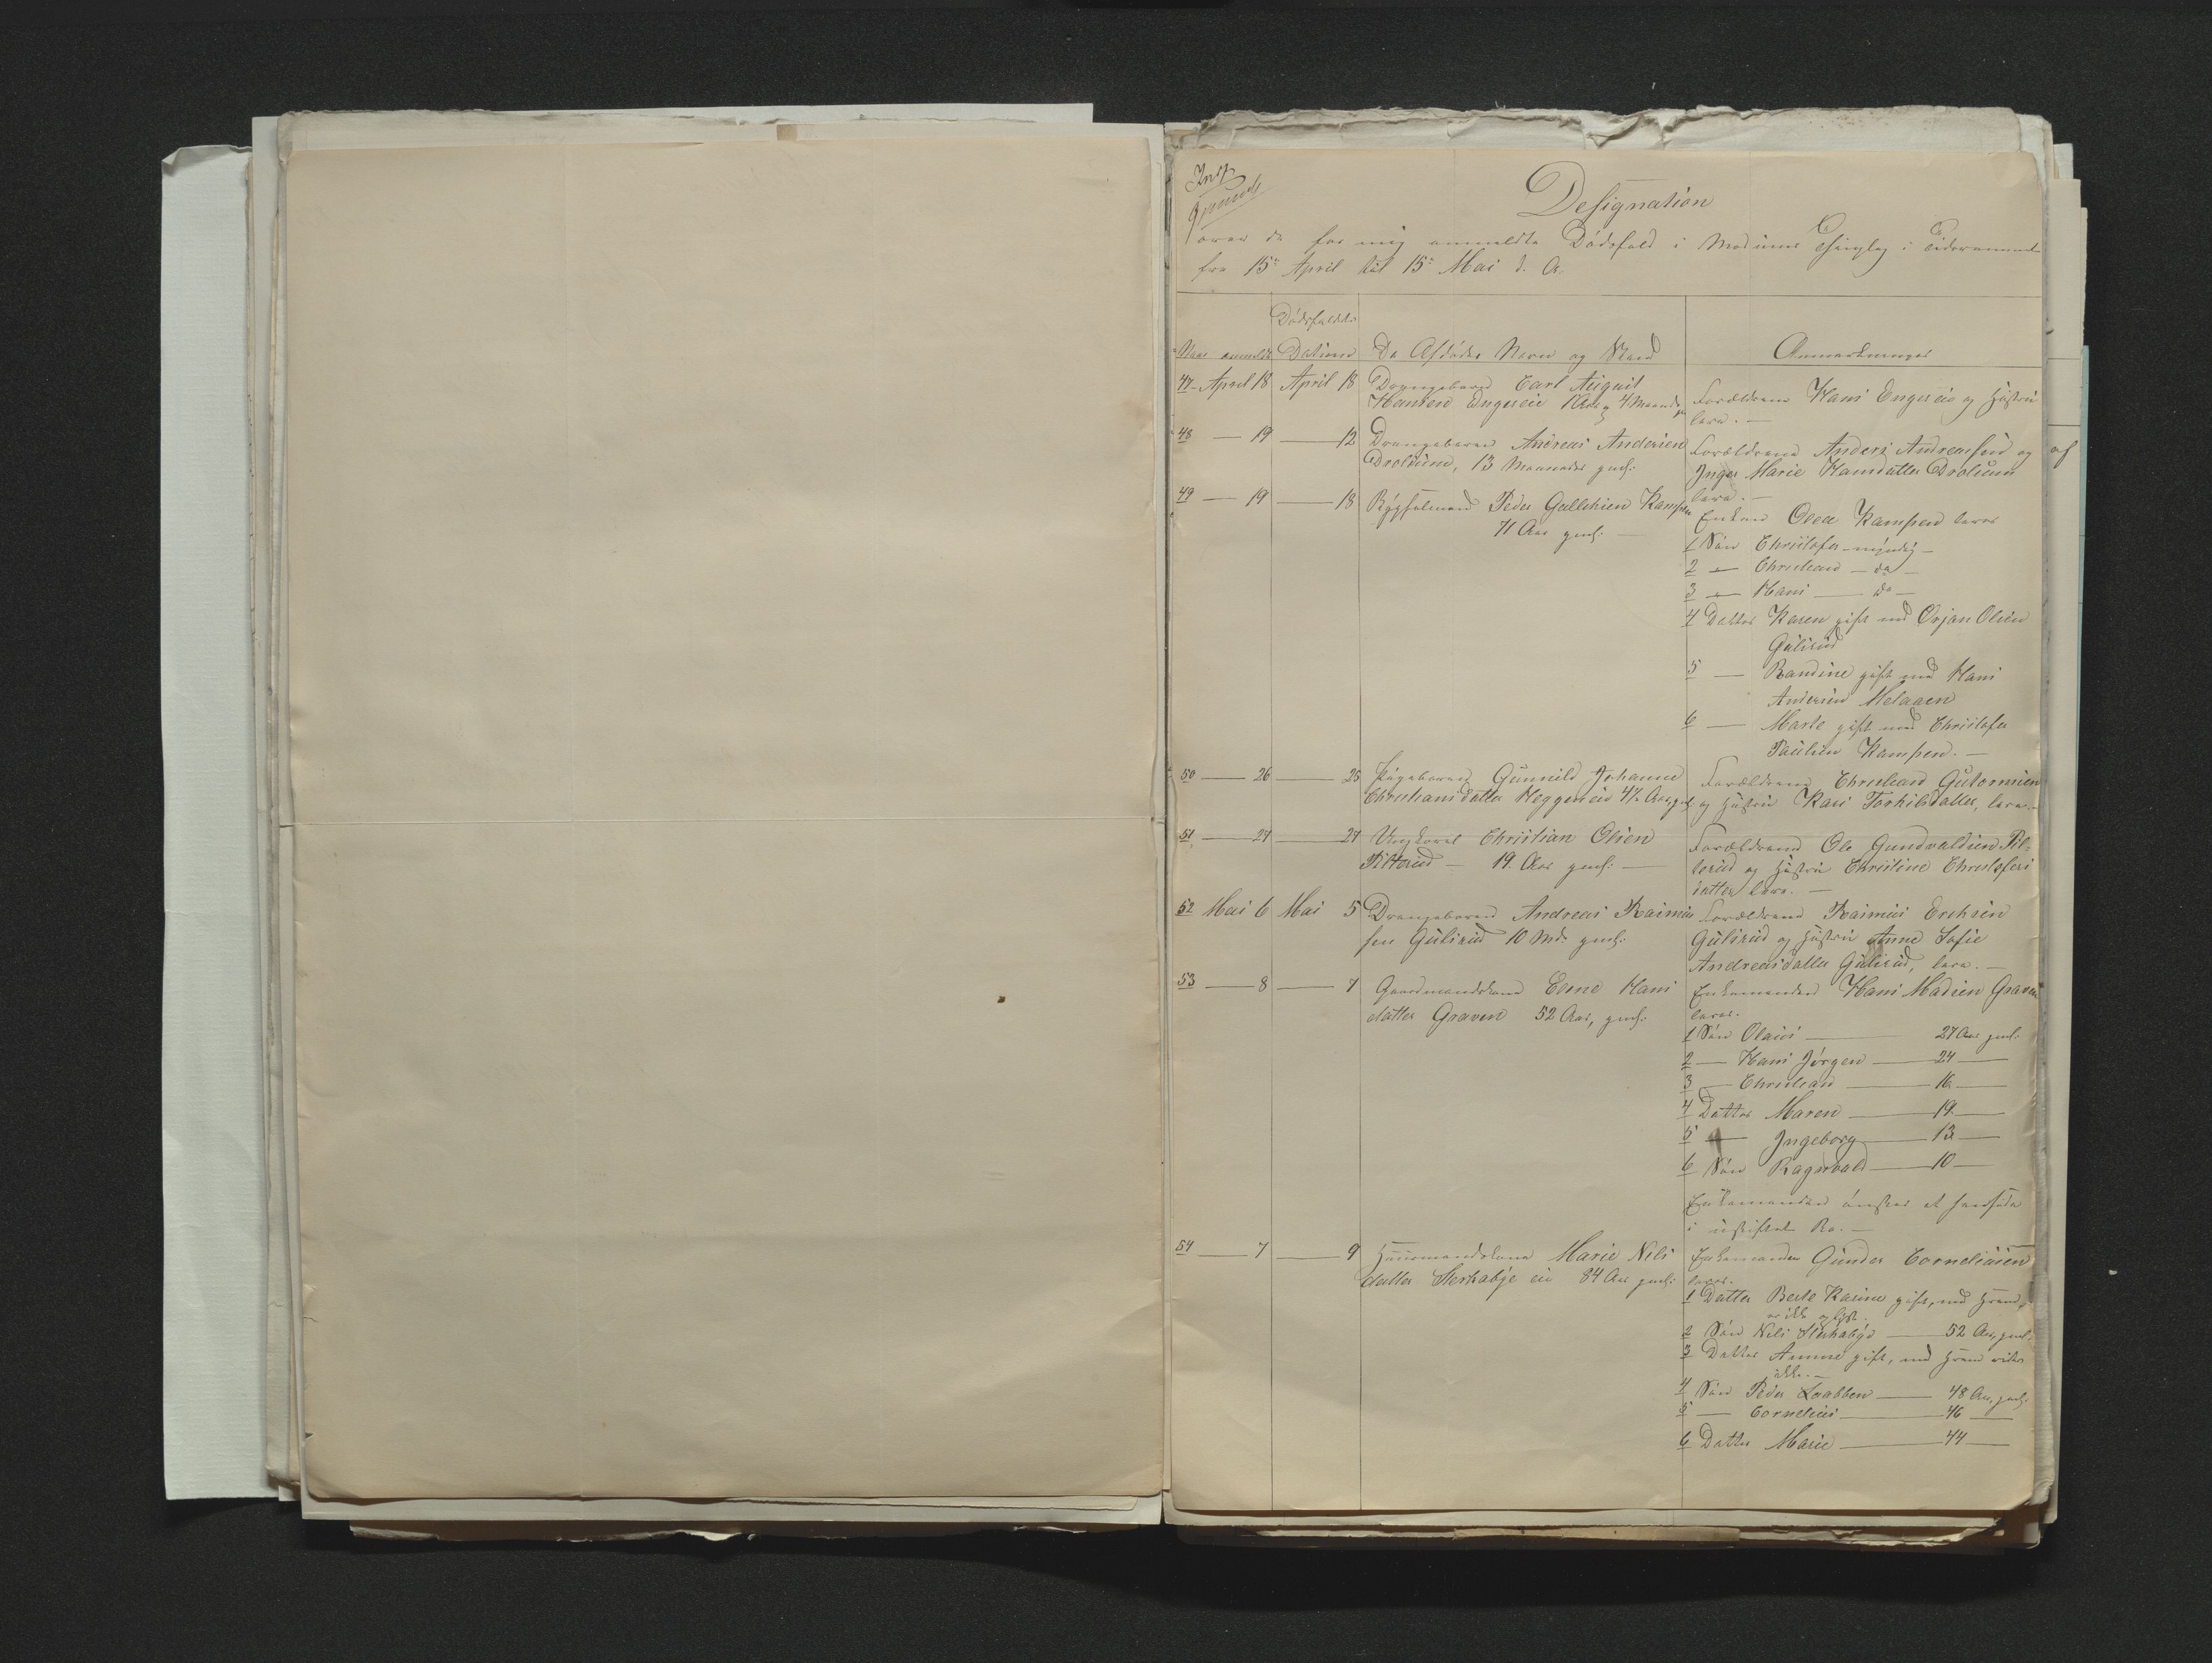 Designation
over de for mig anmeldte Dödsfald i Modums Thinglag i Tidsrummet
fra 15de April til 15de Mai d. A.
Dödsfaldets
Naar anmeldt Datum De Afdödes Navn og Stand Anmærkninger
47 April 18 April 18 Drengebarn Carl August
Hansen Engereie 1 Aar og 4 Maaneder
Forældrene Hans Engereie og Hustru
leve. —
48 — 19 — 12 Drengebarn Andreas Andersen
Drolsum, 13 Maaneder gml.
Forældrene Anders Andreassen og
Inger Marie Hansdatter Drolsum
leve. —
49 — 19 — 18 Peder Gulliksen Kampen
71 Aar gml. —
Enken Olea Kampen lever
1 Sön Christofer — myndig —
2 — Christian — do —
3 — Hans — do —
4 Datter Karen gift med Örjan Olsen
Gulsrud
5 — Randine gift med Hans
Andersen Melaaen
6 — Marte gift med Christofer
Paulsen Kampen. —
50 — 26 — 25 Pigebarn Gunnild Johanne
Christiansdatter Heggeneie 4½ Aar gml.
Forældrene Christian Gutormsen
og Hustru Kari Torkilsdatter, leve. —
51 — 27 — 27 Ungkarl Christian Olsen
Pilterud — 19 Aar gml. —
Forældrene Ole Gundvaldsen Pil-
terud og Hustru Christine Christofers
datter leve. —
52 Mai 6 Mai 5 Drengebarn Andreas Rasmus
sen Gulsrud 10 Md. gml.
Forældrene Rasmus Erichsen
Gulsrud og Hustru Anne Sofie
Andreasdatter Gulsrud, leve. —
53 — 8 — 7 Gaardmandskone Eline Hans
datter Graven 52 Aar, gml.
Enkemanden Hans Madsen Graven
lever.
1 Sön Olaus — 27 Aar gml.
2 — Hans Jörgen — 24 —
3 — Christian — 16 —
4 Datter Maren — 19 —
5 — Ingeborg — 13 —
6 Sön Ragnvald — 10 —
Enkemanden önsker at henside
i uskiftet Bo. —
54 — 7 — 9 Huusmandskone Marie Nils
datter Sterkabye eie 84 Aar gml.
Enkemanden Gunder Corneliusen
lever.
1 Datter Berte Karine gift, med hvem,
er ikke oplyst.
2 Sön Nils Sterkabye — 52 Aar gml.
3 Datter Anne gift, med hvem vides
ikke. —
4 Sön Peder Laabben — 48 Aar, gml.
5 — Cornelius — 46 —
6 Datter Marie — 44 —
af